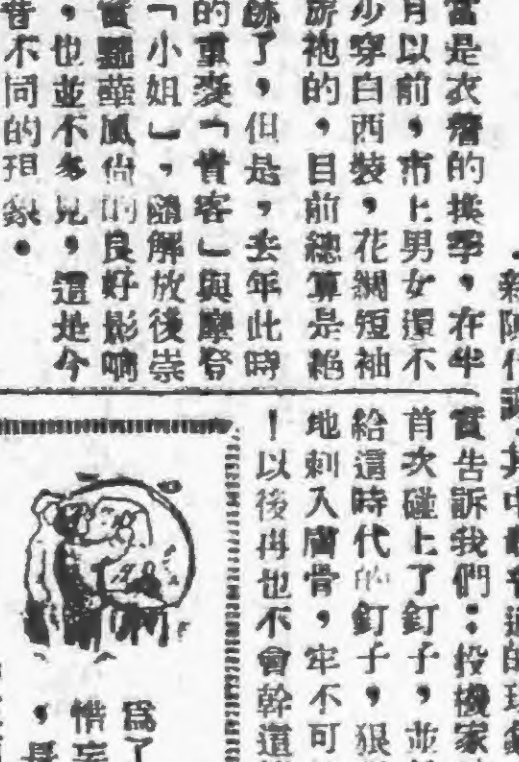 當是衣着的換季，在半
月以前，市上男女還不
少穿白西裝，花綢短袖
旂袍的，目前總算是絕
跡了，但是，去年此時
的重裘「貴客」與摩登
「小姐」，隨解放後崇
實黜華風尚的良好影响
，也並不多見，這是今
昔不同的現象。
新陳代謝，其中
實告訴我們：投機家
首次碰上了釘子，並
給這時代的釘子，狠
地刺入膚骨，牢不可
！以後再也不會幹這
爲了
惜
，